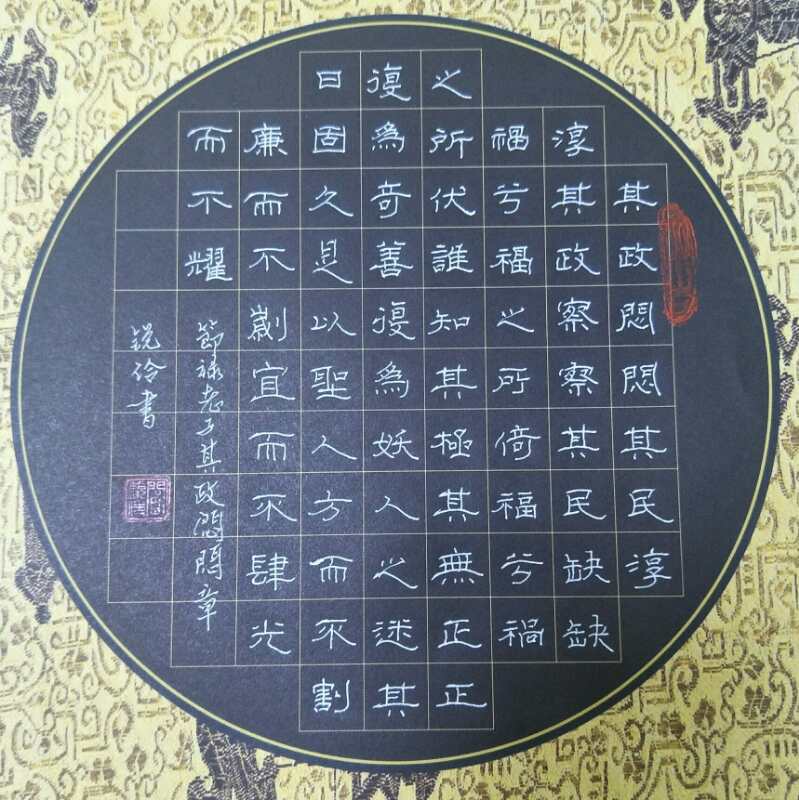 其政悶悶其民淳
淳其政察察其民缺缺
禍兮福之所倚福兮禍
之所伏誰知其極其無正正
復為奇善復為妖人之迷其
日固久是以聖人方而不割
廉而不劌宜而不肆光
而不耀
節祿老子其政悶悶章
锐伶書